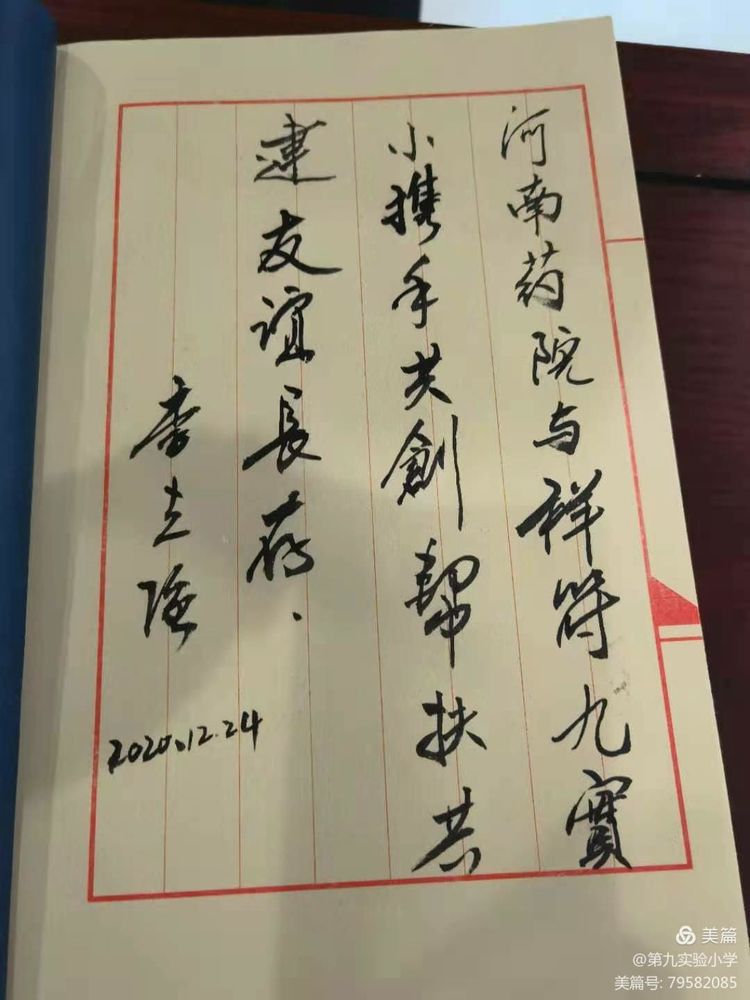 河南药院与祥符九實
小携手共創幫扶共
建友谊長存.
李
2020.12.24
美篇
@第九实验小学
美篇号: 79582085